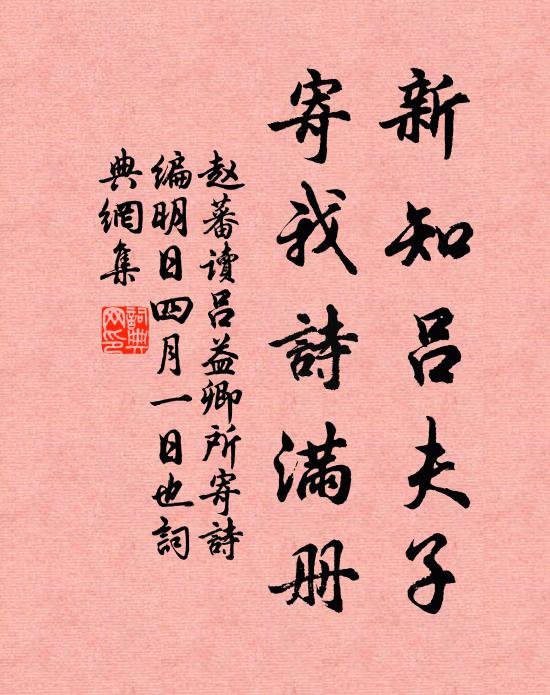 新知吕夫子
寄我詩满册
赵蕃读吕益卿所寄詩
编明日四月一日也詞
典網集
詞典
网印